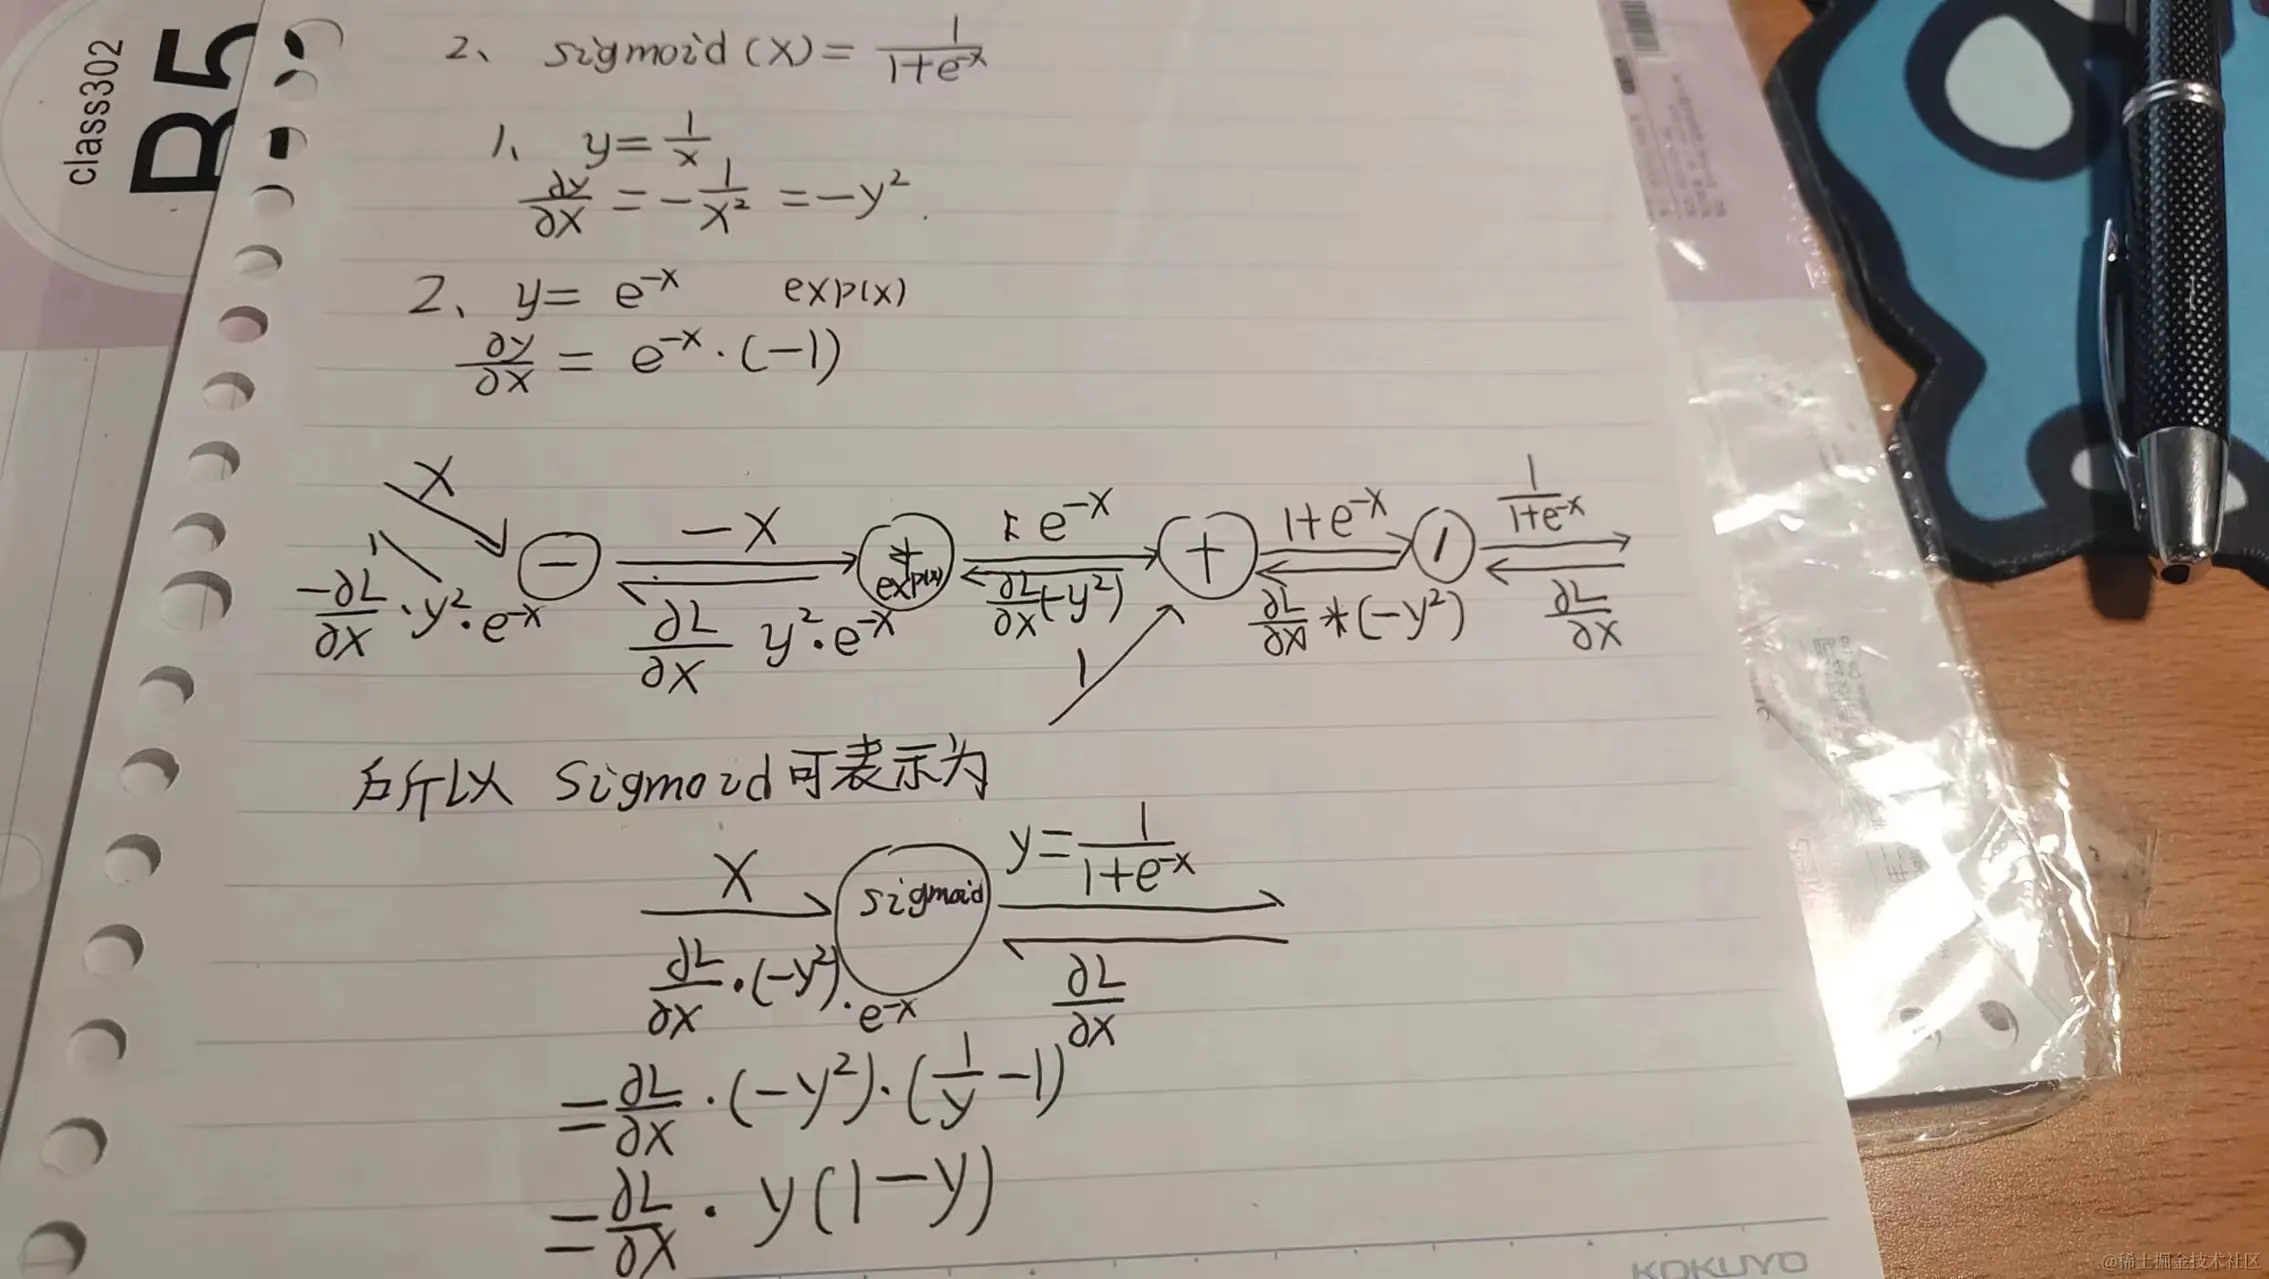 class302
B5
2、 sigmoid (x) = \frac{1}{1+e^{-x}}
1、 y = \frac{1}{x}
\frac{∂y}{∂x} = -\frac{1}{x^2} = -y^2.
2、 y = e^{-x} exp(x)
\frac{∂y}{∂x} = e^{-x}·(-1)
x − -x exp(x) e^{-x} + 1+e^{-x} / \frac{1}{1+e^{-x}}
\frac{-∂L}{∂x}·y^2·e^{-x} \frac{∂L}{∂x} y^2·e^{-x} \frac{∂L}{∂x}(-y^2) 1 \frac{∂L}{∂x}*(-y^2) \frac{∂L}{∂x}
所以 Sigmoid可表示为
x sigmoid y = \frac{1}{1+e^{-x}}
\frac{∂L}{∂x}·(-y^2)·e^{-x} \frac{∂L}{∂x}
= \frac{∂L}{∂x}·(-y^2)·(\frac{1}{y}-1)
= \frac{∂L}{∂x}· y(1-y)
KOKUYO
@稀土掘金技术社区